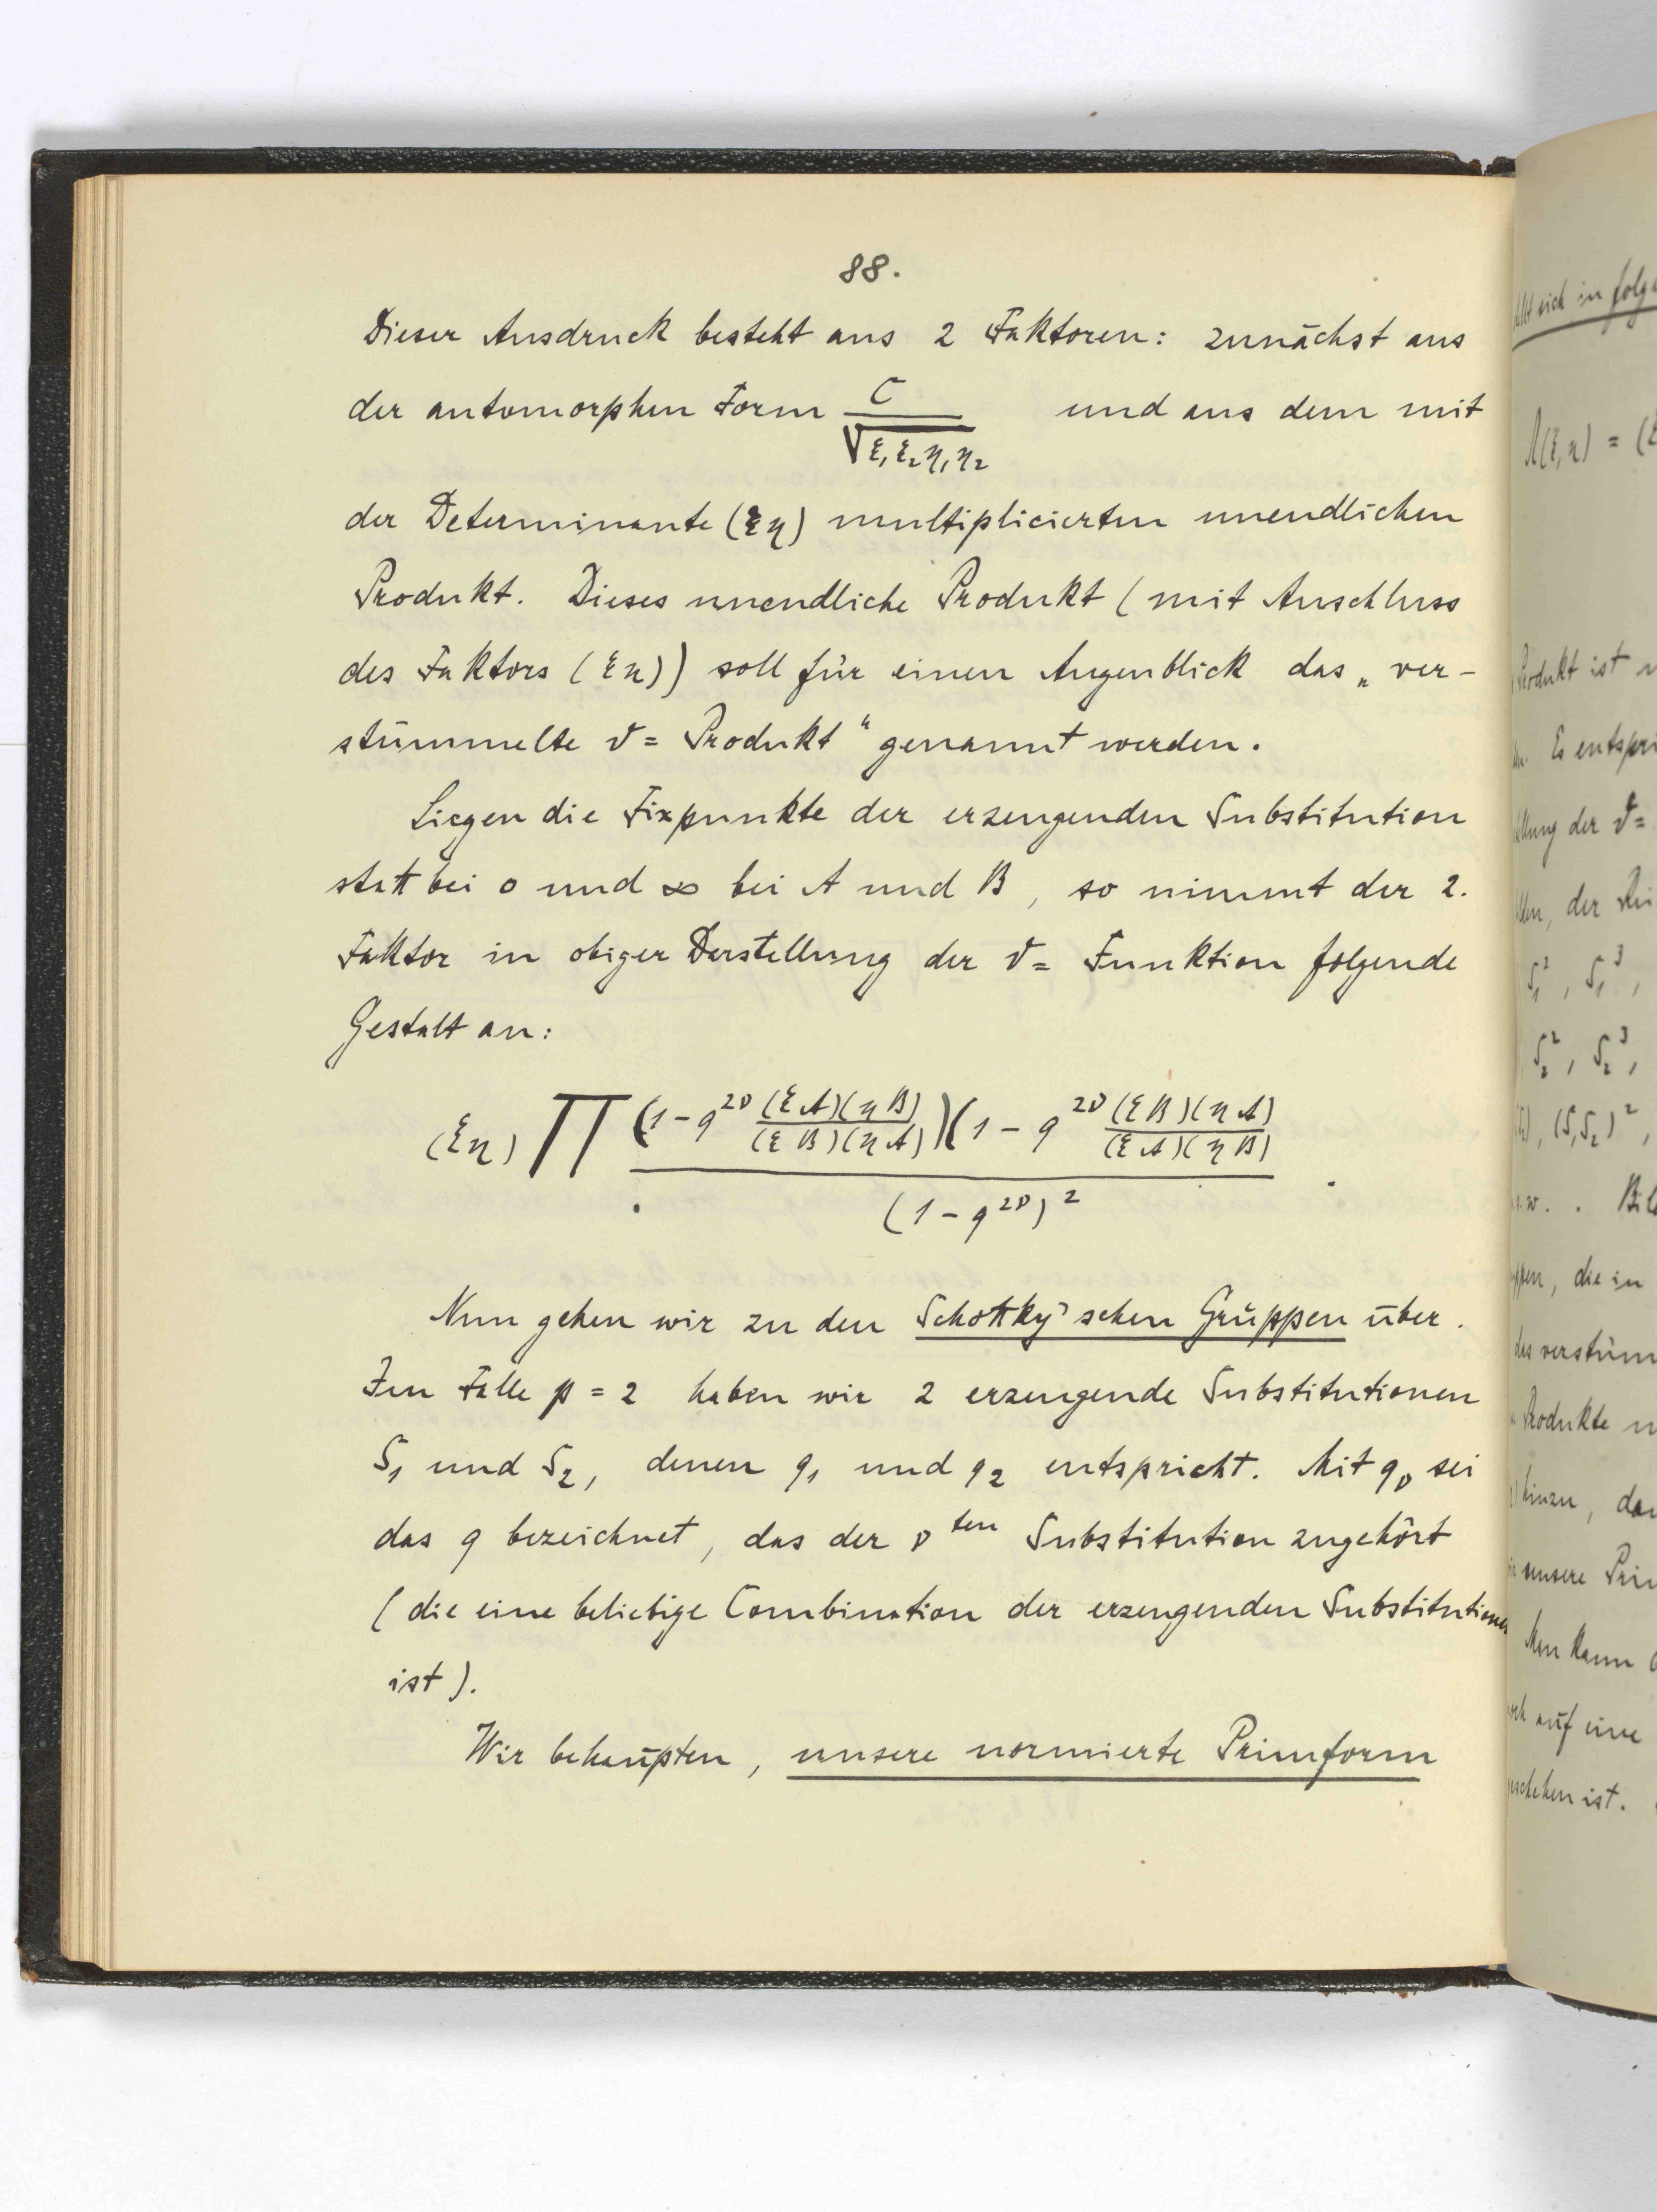 88.
Dieser Ausdruck besteht aus 2 Faktoren: zunächst aus
der automorphen Form C / √ξ₁ξ₂η₁η₂ und aus dem mit
der Determinante (ξη) multiplicierten unendlichen
Produkt. Dieses unendliche Produkt (mit Anschluss
des Faktors (ξη)) soll für einen Augenblick das „ver-
stümmelte ϑ= Produkt“ genannt werden.
Liegen die Fixpunkte der erzeugenden Substitution
statt bei 0 und ∞ bei A und B, so nimmt der 2.
Faktor in obiger Darstellung der ϑ= Funktion folgende
Gestalt an:
(ξη) ∏ (1 - q^{2ν} (ξA)(ηB) / (ξB)(ηA)) (1 - q^{2ν} (ξB)(ηA) / (ξA)(ηB)) / (1 - q^{2ν})² .
Nun gehen wir zu den Schottky'schen Gruppen über.
Im Falle p = 2 haben wir 2 erzeugende Substitutionen
S₁ und S₂, denen q₁ und q₂ entspricht. Mit q_ν sei
das q bezeichnet, das der ν^{ten} Substitution zugehört
(die eine beliebige Combination der erzeugenden Substitutionen
ist).
Wir behaupten, unsere normierte Primform
 sich in folge
Λ(ξ,η) = (ξ
Produkt ist
Es entspri
der ϑ=
der
S₁², S₁³,
S₂², S₂³,
(S₁S₂)²,
die in
das verstüm
Produkte
hinzu,
unsere Prim
Man kann
auf eine
ist.